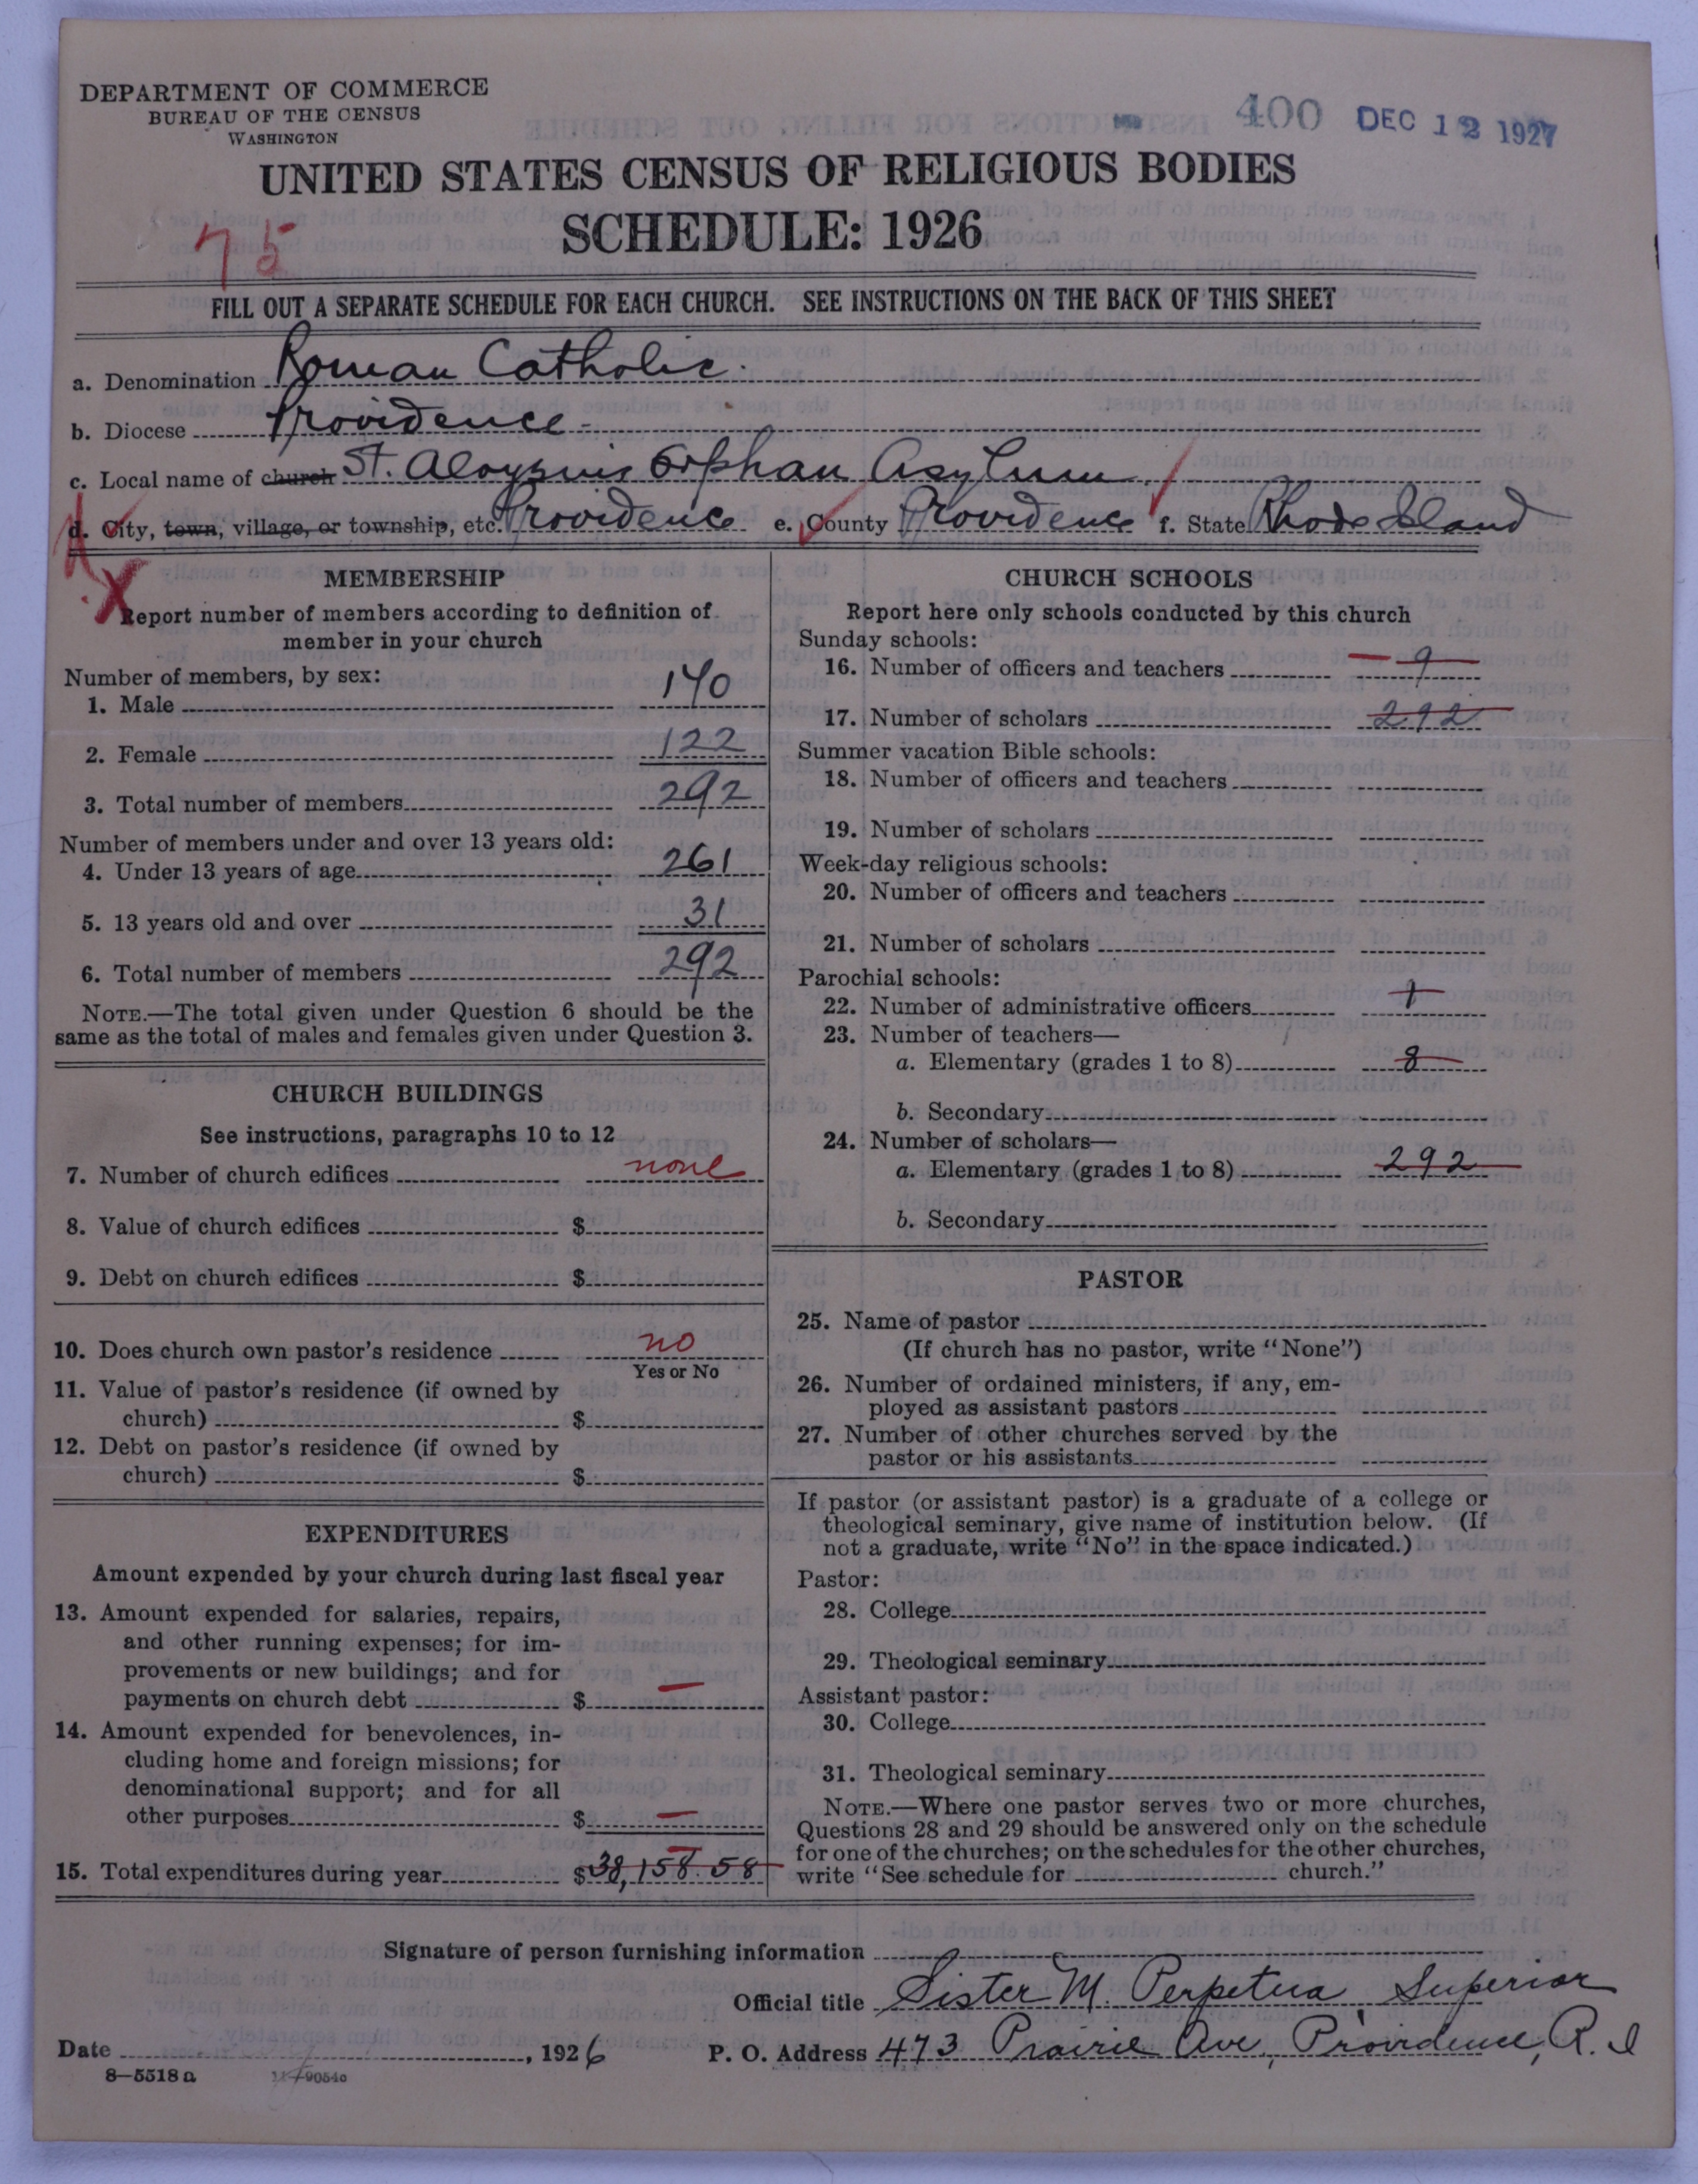 DEPARTMENT OF COMMERCE
BUREAU OF THE CENSUS
WASHINGTON
400 DEC 12 1927
UNITED STATES CENSUS OF RELIGIOUS BODIES
SCHEDULE: 1926
75
FILL OUT A SEPARATE SCHEDULE FOR EACH CHURCH. SEE INSTRUCTIONS ON THE BACK OF THIS SHEET
a. Denomination Roman Catholic.
b. Diocese Providence
c. Local name of church St. Aloysuis Orphan Asylum.
d. City, town, village, or township, etc. Providence e. County Providence f. State Rhode Island
MEMBERSHIP
Report number of members according to definition of
member in your church
Number of members, by sex:
1. Male 170
2. Female 122
3. Total number of members 292
Number of members under and over 13 years old:
4. Under 13 years of age 261
5. 13 years old and over 31
6. Total number of members 292
NOTE.—The total given under Question 6 should be the
same as the total of males and females given under Question 3.
CHURCH BUILDINGS
See instructions, paragraphs 10 to 12
7. Number of church edifices none
8. Value of church edifices $
9. Debt on church edifices $
10. Does church own pastor's residence no
Yes or No
11. Value of pastor's residence (if owned by
church) $
12. Debt on pastor's residence (if owned by
church) $
EXPENDITURES
Amount expended by your church during last fiscal year
13. Amount expended for salaries, repairs,
and other running expenses; for im-
provements or new buildings; and for
payments on church debt $ —
14. Amount expended for benevolences, in-
cluding home and foreign missions; for
denominational support; and for all
other purposes $ —
15. Total expenditures during year $38,158.58
CHURCH SCHOOLS
Report here only schools conducted by this church
Sunday schools:
16. Number of officers and teachers 9
17. Number of scholars 292
Summer vacation Bible schools:
18. Number of officers and teachers
19. Number of scholars
Week-day religious schools:
20. Number of officers and teachers
21. Number of scholars
Parochial schools:
22. Number of administrative officers 1
23. Number of teachers—
a. Elementary (grades 1 to 8) 8
b. Secondary
24. Number of scholars—
a. Elementary (grades 1 to 8) 292
b. Secondary
PASTOR
25. Name of pastor
(If church has no pastor, write "None")
26. Number of ordained ministers, if any, em-
ployed as assistant pastors
27. Number of other churches served by the
pastor or his assistants
If pastor (or assistant pastor) is a graduate of a college or
theological seminary, give name of institution below. (If
not a graduate, write "No" in the space indicated.)
Pastor:
28. College
29. Theological seminary
Assistant pastor:
30. College
31. Theological seminary
NOTE.—Where one pastor serves two or more churches,
Questions 28 and 29 should be answered only on the schedule
for one of the churches; on the schedules for the other churches,
write "See schedule for church."
Signature of person furnishing information
Official title Sister M. Perpetua Superior
Date , 1926 P. O. Address 473 Prairie Ave, Providence, R. I
8—5518a